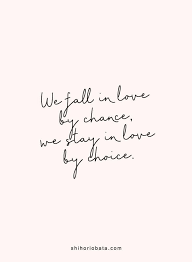 We fall in love
by chance,
we stay in love
by choice.
shihoriobata.com